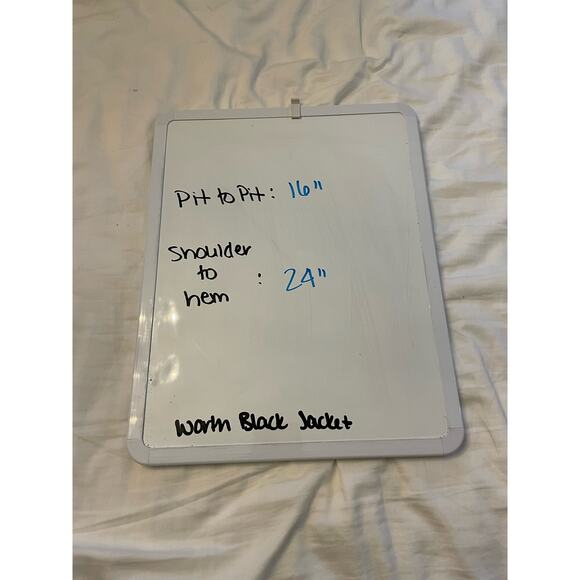 Pit to Pit: 16"
Shoulder
to : 24"
hem
Worth Black Jacket